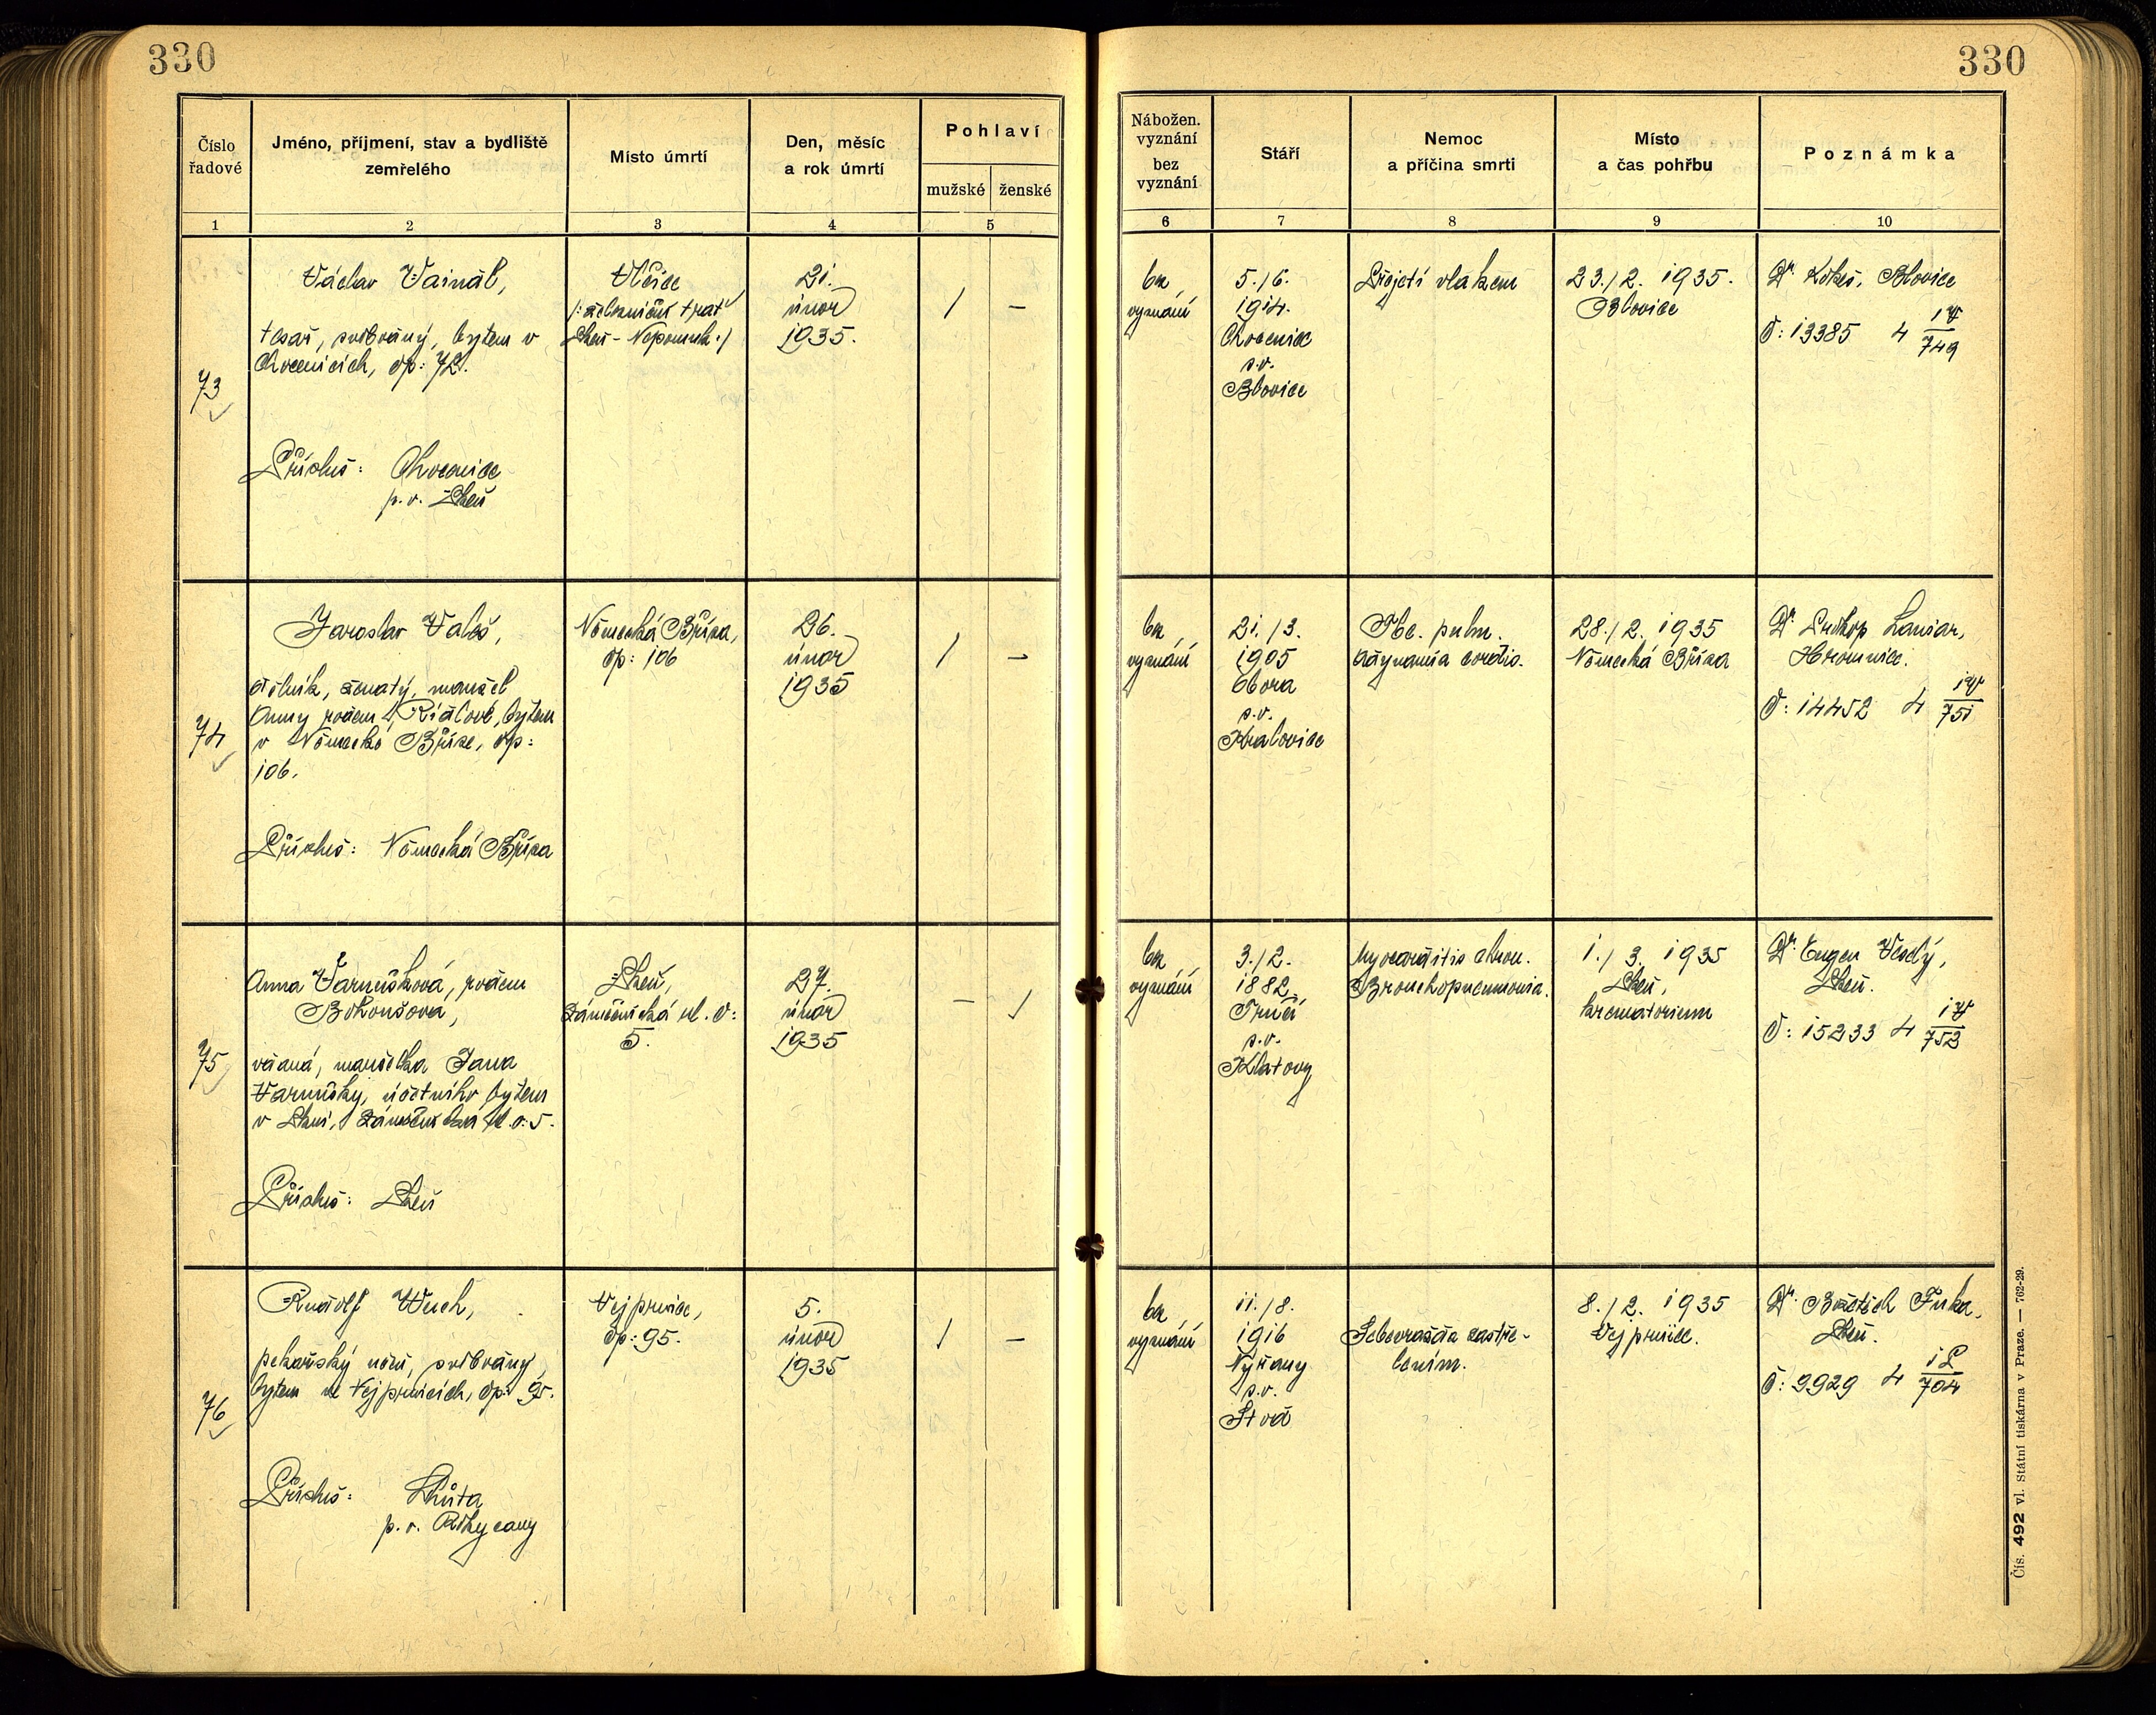 330
330
Číslo řadové
Jméno, příjmení, stav a bydliště zemřelého
Místo úmrtí
Den, měsíc a rok úmrtí
Pohlaví
mužské
ženské
1
2
3
4
5
Nábožen. vyznání bez vyznání
Stáří
Nemoc a příčina smrti
Místo a čas pohřbu
Poznámka
6
7
8
9
10
73
Václav
tesař, svobodný, bytem v
Chocenicích, čp: 72.
Přísluš: Chocenice
p.v. Plzeň
Vlčice
/: železniční trať
Plzeň - Nepomuk :/
21.
únor
1935.
/
–
bez
vyznání
5./6.
1914.
Chocenice
s.o.
Blovice
Přejetí vlakem
23./2. 1935.
Blovice
Dr. Blovice
č: 13385 4 17/749
74
Jaroslav Valeš,
dělník, ženatý, manžel
Anny rozem. bytem
v Německé Bříze, čp:
106.
Přísluš: Německá Bříza
Německá Bříza,
čp: 106
26.
únor
1935
/
–
bez
vyznání
21./3.
1905
Obora
s.o.
Kralovice
Tbc. pulm.
Adynamia cordis.
28./2. 1935
Německá Bříza
Dr. Prokop
Hromnice.
č: 14452 4 17/751
75
Anna Varmužková, rozem
vdaná, manželka Jana
Varmužky, účetního bytem
v Plzni, Zámečnická ul. č. 5.
Přísluš: Plzeň
Plzeň,
Zámečnická ul. č:
5.
27.
únor
1935
–
/
bez
vyznání
3./2.
1882
s.o.
Klatovy
Myocarditis chron.
Bronchopneumonia.
1./3. 1935
Plzeň,
krematorium
Dr. Eugen Veselý,
Plzeň.
č: 15233 4 17/753
76
Rudolf Wuch,
pekařský učeň, svobodný
bytem ve Vejprnicích, čp: 95.
Přísluš: Lhůta
p.o. Rokycany
Vejprnice,
čp: 95.
5.
únor
1935
/
–
bez
vyznání
11./8.
1916
Nýřany
s.o.
Stod
Sebevražda zastře-
lením.
8./2. 1935
Vejprnice.
Dr. Bedřich Fuka,
Plzeň.
č: 9929 4 12/704
Čís. 492 vl. Státní tiskárna v Praze. — 762-29.